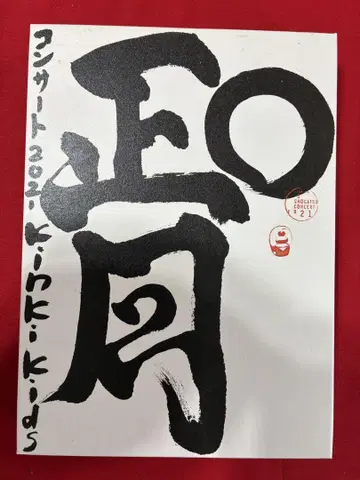 O
正月
コンサート2021 KinKi Kids
O
SHOGATSU
CONCERT
2021